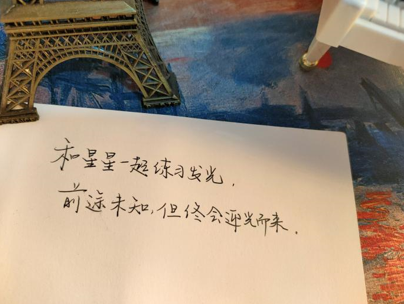 和星星一起练习发光,
前途未知,但终会迎光而来.